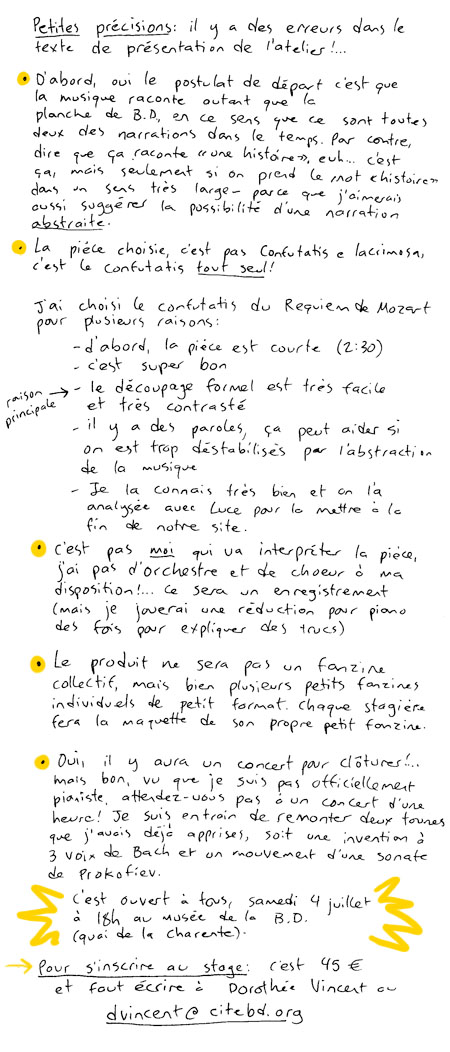 Petites précisions: il y a des erreurs dans le
texte de présentation de l'atelier!...
D'abord, oui le postulat de départ c'est que
la musique raconte autant que la
planche de B.D, en ce sens que ce sont toutes
deux des narrations dans le temps. Par contre,
dire que ça raconte «une histoire», euh... c'est
ça, mais seulement si on prend le mot «histoire»
dans un sens très large - parce que j'aimerais
aussi suggérer la possibilité d'une narration
abstraite.
La pièce choisie, c'est pas Confutatis e lacrimosa,
c'est le confutatis tout seul!
J'ai choisi le confutatis du Requiem de Mozart
pour plusieurs raisons:
- d'abord, la pièce est courte (2:30)
- c'est super bon
raison principale → - le découpage formel est très facile
et très contrasté
- il y a des paroles, ça peut aider si
on est trop déstabilisés par l'abstraction
de la musique
- Je la connais très bien et on l'a
analysée avec Luce pour la mettre à la
fin de notre site.
C'est pas moi qui va interpréter la pièce,
j'ai pas d'orchestre et de choeur à ma
disposition!... Ce sera un enregistrement
(mais je jouerai une réduction pour piano
des fois pour expliquer des trucs)
Le produit ne sera pas un fanzine
collectif, mais bien plusieurs petits fanzines
individuels de petit format. Chaque stagière
fera la maquette de son propre petit fanzine.
Oui, il y aura un concert pour clôturer!...
mais bon, vu que je suis pas officiellement
pianiste, attendez-vous pas à un concert d'une
heure! Je suis en train de remonter deux tounes
que j'avais déjà apprises, soit une invention à
3 voix de Bach et un mouvement d'une sonate
de Prokofiev.
C'est ouvert à tous, samedi 4 juillet
à 18h au musée de la B.D.
(quai de la Charente).
→ Pour s'inscrire au stage: c'est 45 €
et faut écrire à Dorothée Vincent au
dvincent@citebd.org